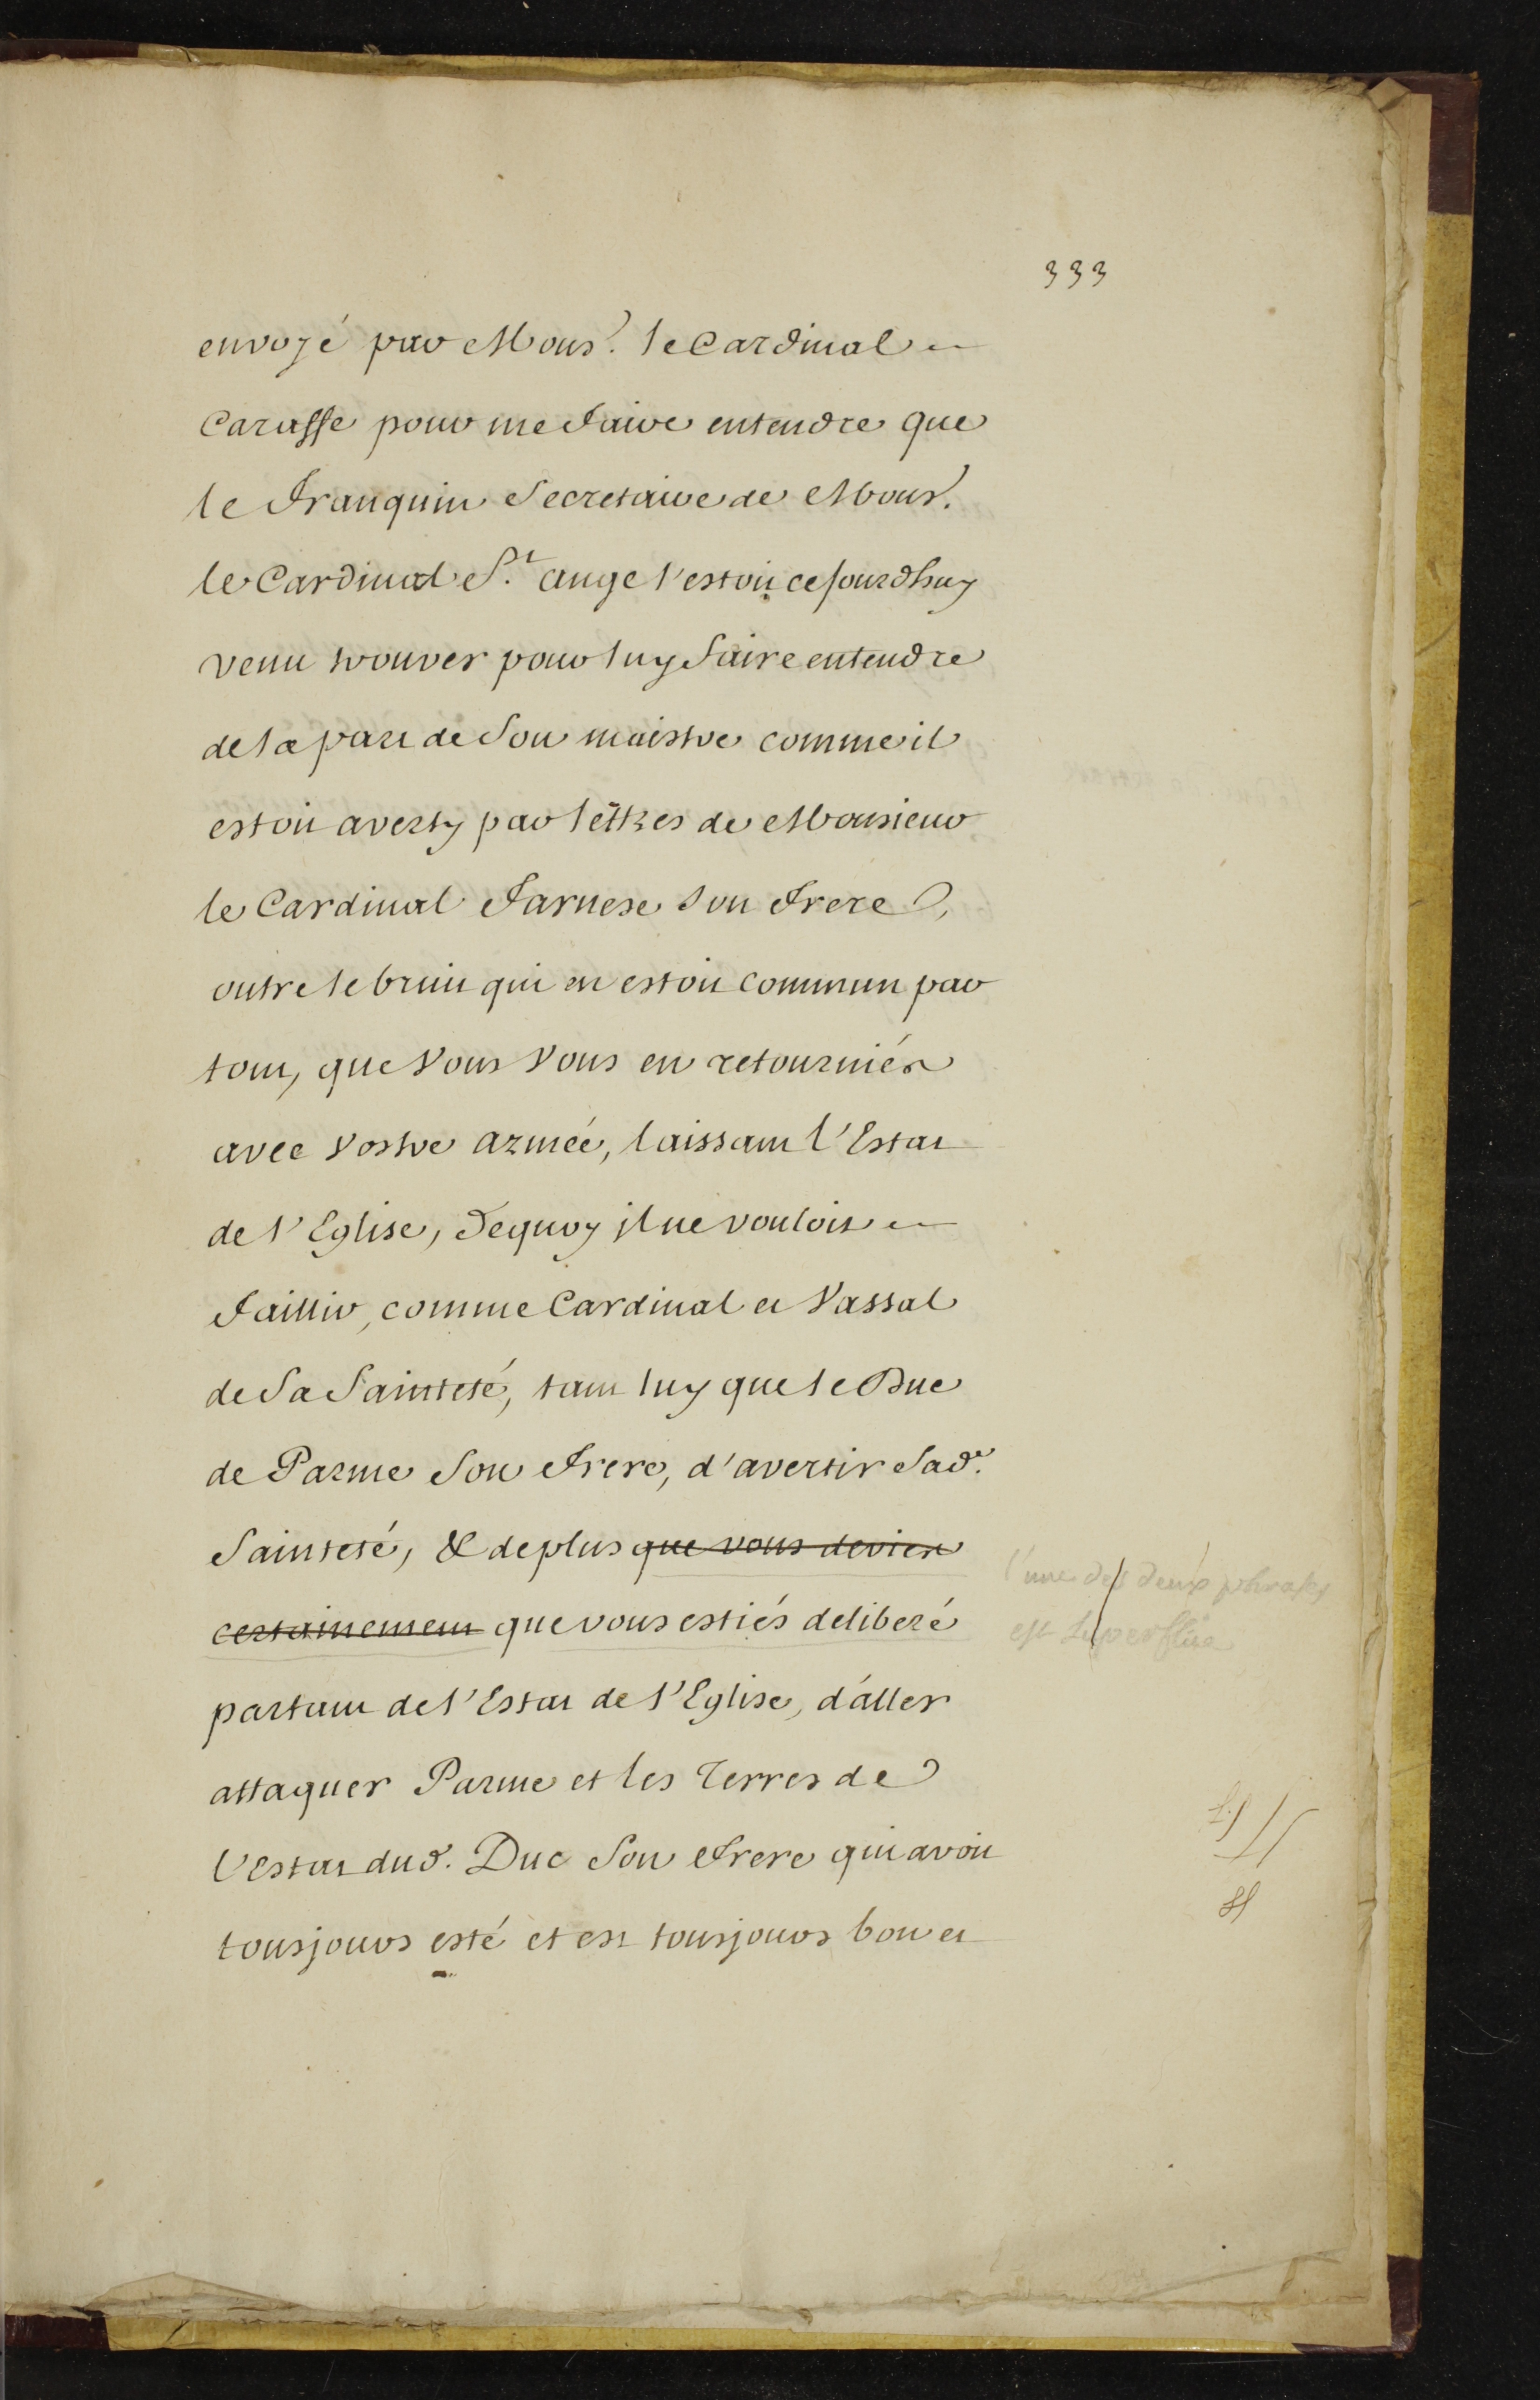 333
envoyé par Mons.r le Cardinal
Caraffe pour me faire entendre que
le Franquin Secretaire de Mons.r
le Cardinal S.t ange l'estoit cejourdhuy
venu trouver pour luy faire entendre
de la part de Son maistre comme il
estoit averty par lettres de Monsieur
le Cardinal Farnese Son Frere,
outre le bruit qui en estoit commun par
tout, que Vous Vous en retourniés
avec Vostre armée, laissant l'Estat
de l'Eglise, dequoy il ne vouloit
Faillir, comme Cardinal et Vassal
de Sa Sainteté, tant luy que le Duc
de Parme Son Frere, d'avertir Sad.e
Sainteté, & deplus que vous deviez
certainement que vous estiés deliberé
l'une des deux phrases
est superflüe
partant de l'Estat de l'Eglise, d'aller
attaquer Parme et les Terres de
l'Estat dud. Duc Son Frere qui avoit
tousjours esté et est tousjours bon et